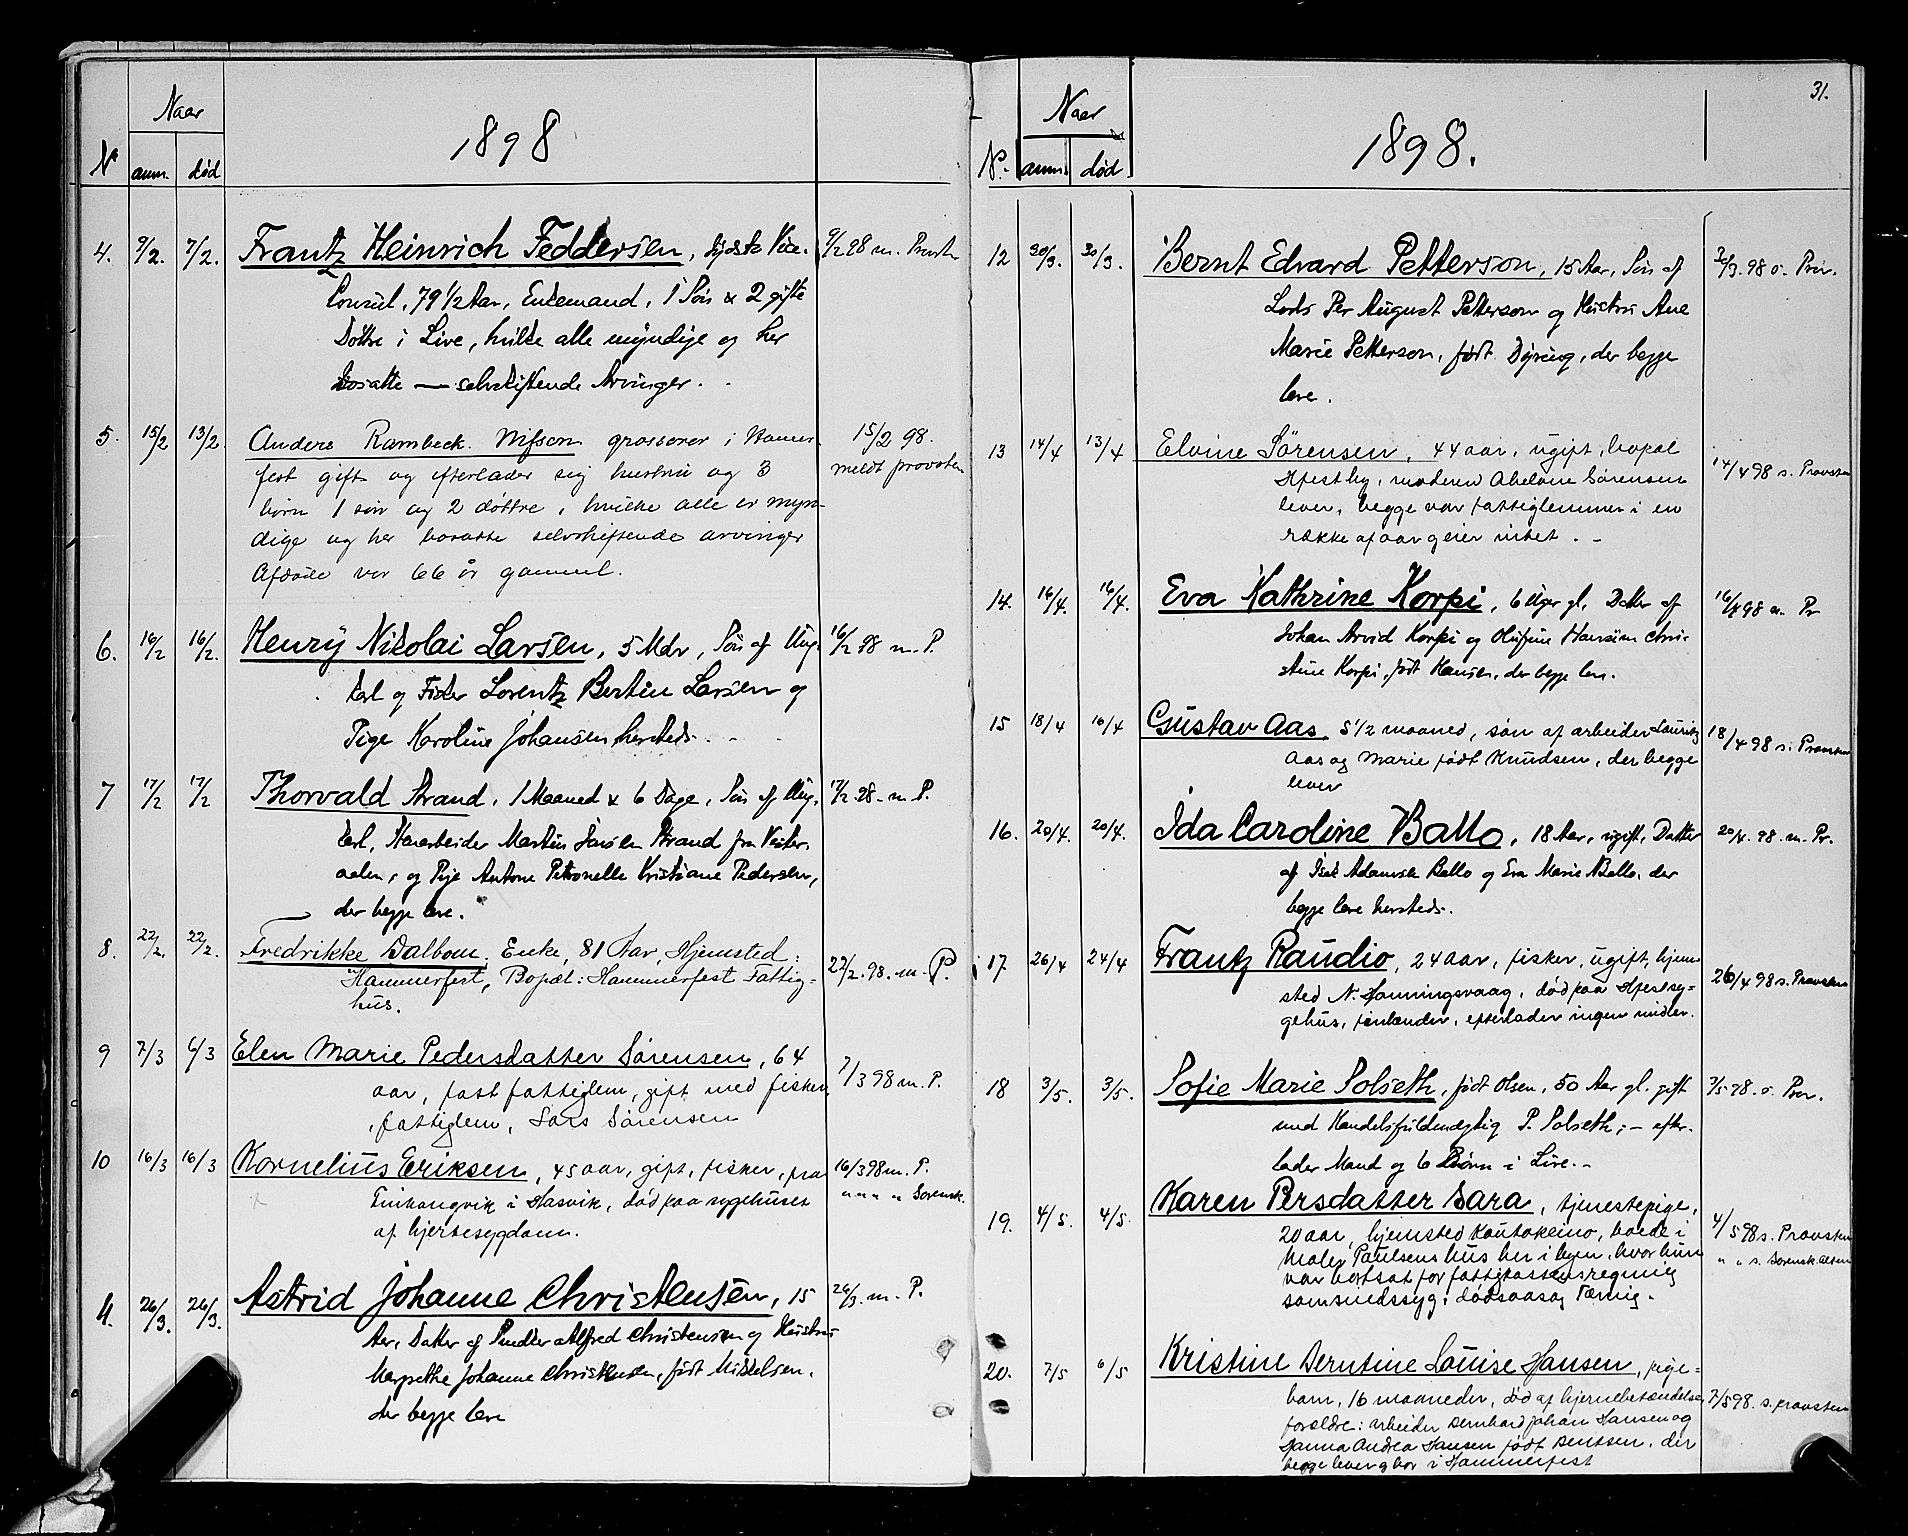 Naar
1898
N anm. død
4. 9/2. 7/2. Frantz Heinrich Feddersen, tydsk Vice- 9/2 98 m. Provsten
Consul, 79 1/2 Aar, Enkemand, 1 Søn & 2 gifte
Døttre i Live, hvilke alle myndige og her
bosatte — selvskiftende Arvinger.
5. 15/2 13/2. Anders Rambeck Nilsson grosserer i Hamer- 15/2 98.
fest gift og efterlader sig hustru og 3 meldt provsten
børn 1 søn og 2 døttre, hvilke alle er myn-
dige og her bosatte selvskiftende arvinger
Afdøde var 66 år gammel.
6. 16/2 16/2. Henry Nikolai Larsen, 5 Mdr, Søn af Ung- 16/2 98 m. P.
karl og Fisker Lorentz Bertin Larsen og
Pige Karoline Johansen hersteds.
7 17/2 17/2 Thorvald Strand, 1 Maaned & 6 Dage, Søn af Ung- 17/2 98. m. P.
karl, Havarbeider Martin Strand fra Vester-
aalen, og Pige Antone Petronelle Kristiane Pedersen,
der begge leve.
8. 22/2. 22/2. Fredrikke Dalbom, Enke, 81 Aar, Hjemsted: 22/2. 98. m. P.
Hammerfest, Bopæl: Hammerfest Fattig-
hus.
9 7/3 6/3 Elen Marie Pedersdatter Sørensen, 64 7/3 98 m. P.
aar, fast fattiglem, gift med fisker,
fattiglem, Lars Sørensen
10 16/3 16/3 Kornelius Eriksen, 45 aar, gift, fisker, fra 16/3 98 m. P.
i Hasvik, død paa sygehuset " " " " Sorensk.
af hjertesygdom.
11. 26/3. 26/3. Astrid Johanne Christensen, 15 26/3. m. P.
Aar, Datter af Alfred Christensen og Hustru
Margrethe Johanne Christensen, født Mikkelsen,
der begge leve
31.
Naar
1898.
N. anm. død
12 30/3. 30/3. Bernt Edvard Petterson, 15 Aar, Søn af 30/3. 98 s. Prov.
Lods Per August Petterson og Hustru Ane
Marie Petterson, født Dyring, der begge
leve.
13 14/4 13/4 Elvine Sørensen, 44 aar, ugift, bopæl 14/4 98 s. Provsten
Hfest by, moderen Abelone Sørensen
lever, begge var fattiglemmer i en
række af aar og eier intet. -
14. 16/4. 16/4. Eva Kathrine Korpi, 6 Uger gl. Datter af 16/4 98 m. Pr
Johan Arvid Korpi og Olufine Hansine Chri-
stine Korpi, født Hansen, der begge leve.
15 18/4 16/4 Gustav Aas. 5 1/2 maaned, søn af arbeider Lauritz 18/4 98 s. Provsten
Aas og Marie født Knudsen, der begge
lever
16. 20/4. 20/4. Ida Caroline Ballo, 18 Aar, ugift, Datter 20/4. 98. m. Pr.
af Isak Adamsen Ballo og Eva Marie Ballo, der
begge leve hersteds.
17. 26/4 24/4 Frantz Raudio, 24 aar, fisker, ugift, hjem- 26/4 98 s. Provsten
sted N. Honningsvaag, død paa Hfest sy-
gehus, finlænder, efterlader ingen midler.
18 3/5. 3/5. Sofie Marie Solseth, født Olsen, 50 Aar gl. gift 3/5. 98. s. Prov.
med Handelsfuldmægtig P. Solseth; - efter-
lader Mand og 6 Børn i Live. -
19. 4/5. 4/5. Karen Persdatter Sara, tjenestepige, 4/5 98 s. Provsten
20 aar, hjemsted Kautokeino, boede i " " s. Sorensk. Alten
Maler Paulsens hus her i byen, hvor hun
var bortsat for fattigkassens regning
som sindssyg. dødsaarsag Tæring.
20. 7/5 6/5 Kristine Berntine Louise Hansen, pige- 7/5 98. s. Provsten
barn, 16 maaneder, død af hjernebetændelse,
forældre: arbeider Bernhard Johan Hansen og
Hanna Andrea Hansen født Bentsen, der
begge lever og bor i Hammerfest